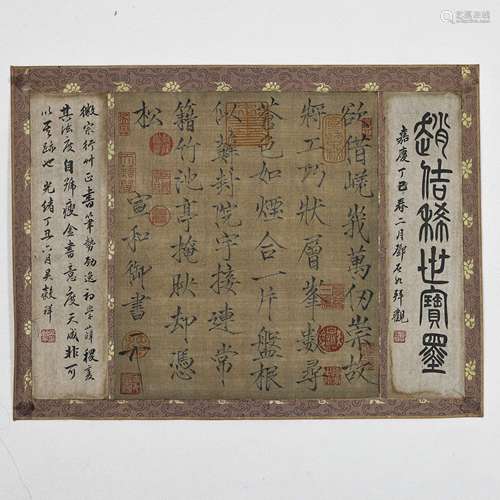 趙佶稀世寶墨
嘉慶丁巳春二月鄧石如拜觀
欲借嶢峩萬仞崇故
將工巧狀層峯數尋
蒼色如煙合一片盤根
似蘚封院宇接連常
籍竹池亭掩映却憑
松
宣和御書
徽宗行草正書筆勢勁逸初學薛稷變
其法度自號瘦金書意度天成非可
以跡也 光緒丁丑六月吳穀祥